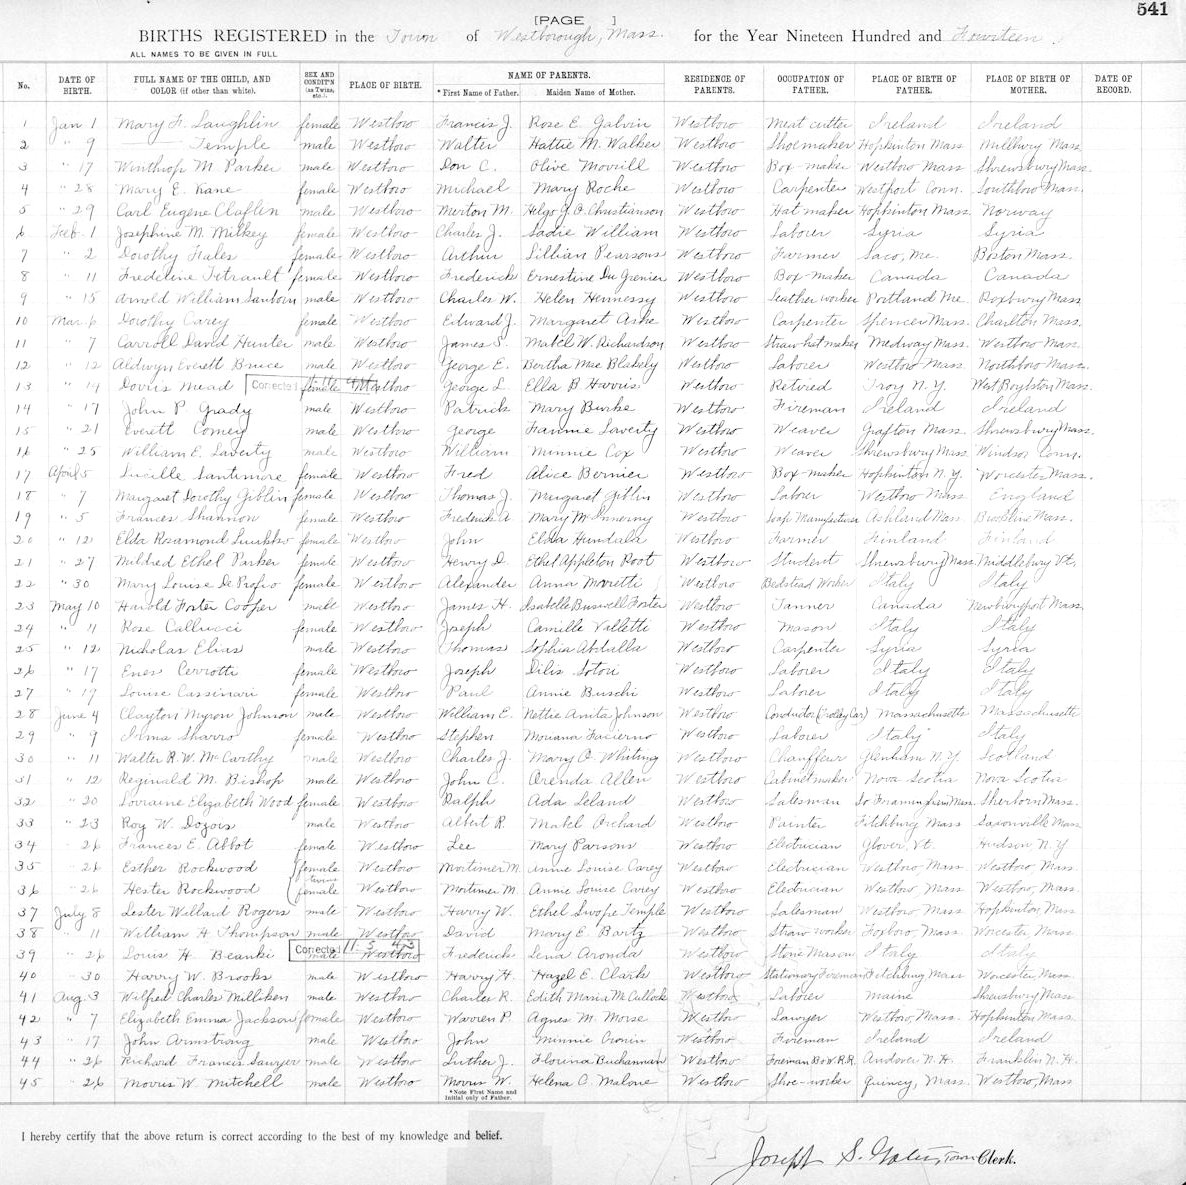 541
[PAGE ]
BIRTHS REGISTERED in the Town of Westborough, Mass. for the Year Nineteen Hundred and Fourteen.
ALL NAMES TO BE GIVEN IN FULL
No. DATE OF BIRTH. FULL NAME OF THE CHILD, AND COLOR (if other than white). SEX AND CONDIT'N (as Twins, etc.). PLACE OF BIRTH. NAME OF PARENTS. * First Name of Father. Maiden Name of Mother. RESIDENCE OF PARENTS. OCCUPATION OF FATHER. PLACE OF BIRTH OF FATHER. PLACE OF BIRTH OF MOTHER. DATE OF RECORD.
1 Jan 1 Mary F. Laughlin female Westboro Francis J. Rose E. Galvin Westboro Meat cutter Ireland Ireland
2 " 9 —— Temple male Westboro Walter Hattie M. Walker Westboro Shoemaker Hopkinton Mass Millbury Mass
3 " 17 Winthrop M. Parker male Westboro Don C. Olive Morrill Westboro Box maker Westboro Mass Shrewsbury Mass.
4 " 28 Mary E. Kane female Westboro Michael Mary Roche Westboro Carpenter Westport Conn. Southboro Mass.
5 " 29 Carl Eugene Claflin male Westboro Merton M. Helga Christianson Westboro Hat maker Hopkinton Mass. Norway
6 Feb. 1 Josephine M. Mitkey female Westboro Charles J. Sadie William Westboro Laborer Syria Syria
7 " 2 Dorothy Fales female Westboro Arthur Lillian Pearsons Westboro Farmer Saco, Me. Boston Mass.
8 " 11 Fredeline Tetrault female Westboro Frederick Ernestine Du Grenier Westboro Box maker Canada Canada
9 " 15 Arnold William Sanborn male Westboro Charles W. Helen Hennessy Westboro Leather worker Portland Me Roxbury Mass
10 Mar. 6 Dorothy Carey female Westboro Edward J. Margaret Ashe Westboro Carpenter Spencer Mass. Charlton Mass.
11 " 7 Carroll David Hunter male Westboro James S. Mabel W. Richardson Westboro Straw hat maker Medway Mass. Westboro Mass.
12 " 12 Aldwyn Everett Bruce male Westboro George E. Bertha Mae Blakely Westboro Laborer Westboro Mass Northboro Mass.
13 " 14 Doris Mead Corrected female Westboro George L. Ella B Harris Westboro Retired Troy N.Y. West Boylston Mass.
14 " 17 John P. Grady male Westboro Patrick Mary Burke Westboro Fireman Ireland Ireland
15 " 21 Everett Comey male Westboro George Fannie Laverty Westboro Weaver Grafton Mass Shrewsbury Mass.
16 " 25 William E. Laverty male Westboro William Minnie Cox Westboro Weaver Shrewsbury Mass Windsor Conn.
17 April 5 Lucille Santimore female Westboro Fred Alice Bernier Westboro Box maker Hopkinton N.Y. Worcester Mass.
18 " 7 Margaret Dorothy Giblin female Westboro Thomas J. Margaret Giblin Westboro Laborer Westboro Mass England
19 " 5 Frances Shannon female Westboro Frederick A. Mary McInnerny Westboro Soap Manufacturer Ashland Mass Brookline Mass.
20 " 12 Elda Rosamond female Westboro John Hundala Westboro Farmer Finland Finland
21 " 27 Mildred Ethel Parker female Westboro Henry D. Ethel Appleton Root Westboro Student Shrewsbury Mass. Middlebury Vt.
22 " 30 Mary Louise De Profio female Westboro Alexander Anna Moretti Westboro Bedstead Worker Italy Italy
23 May 10 Harold Foster Cooper male Westboro James H. Isabelle Buswell Foster Westboro Tanner Canada Newburyport Mass.
24 " 11 Rose Callucci female Westboro Joseph Camille Valletti Westboro Mason Italy Italy
25 " 12 Nicholas Elias male Westboro Thomas Sophia Abdulla Westboro Carpenter Syria Syria
26 " 17 Enes Cerrotti female Westboro Joseph Dilis Sotoi Westboro Laborer Italy Italy
27 " 19 Louise Cassinari female Westboro Paul Annie Buschi Westboro Laborer Italy Italy
28 June 4 Clayton Myron Johnson male Westboro William E. Nettie Anita Johnson Westboro Conductor (Trolley Car) Massachusetts Massachusetts
29 " 9 Irma Sharro female Westboro Stephen Westboro Laborer Italy Italy
30 " 11 Walter R.W. McCarthy male Westboro Charles J. Mary O. Whiting Westboro Chauffeur Glenham N.Y. Scotland
31 " 12 Reginald M. Bishop male Westboro John C. Orenda Allen Westboro Cabinet maker Nova Scotia Nova Scotia
32 " 20 Lorraine Elizabeth Wood female Westboro Ralph Ada Leland Westboro Salesman So Framingham Mass. Sherborn Mass.
33 " 23 Roy W. Dozois male Westboro Albert R. Mabel Orchard Westboro Painter Fitchburg Mass Saxonville Mass
34 " 26 Frances E. Abbot female Westboro Lee Mary Parsons Westboro Electrician Glover, Vt. Hudson N.Y
35 " 26 Esther Rockwood female Westboro Mortimer M. Annie Louise Carey Westboro Electrician Westboro, Mass Westboro Mass.
twins
36 " 26 Hester Rockwood female Westboro Mortimer M. Annie Louise Carey Westboro Electrician Westboro Mass Westboro, Mass.
37 July 8 Lester Willard Rogers male Westboro Harry W. Ethel Swope Temple Westboro Salesman Westboro Mass Hopkinton Mass
38 " 11 William H Thompson male Westboro David Mary E. Bartz Westboro Straw worker Foxboro Mass. Worcester, Mass
39 " 26 Louis H. Beanki Corrected 11. 5 42 male Westboro Frederick Lena Aronda Westboro Stone Mason Italy Italy
40 " 30 Harry W. Brooks male Westboro Harry H. Hazel E. Clark Westboro Stationary Fireman Fitchburg Mass Worcester Mass.
41 Aug. 3 Wilfred Charles Milliken male Westboro Charles R. Edith Maria McCullock Westboro Laborer Maine Shrewsbury Mass
42 " 7 Elizabeth Emma Jackson female Westboro Warren P. Agnes M. Morse Westboro Lawyer Westboro, Mass. Hopkinton Mass.
43 " 17 John Armstrong male Westboro John Minnie Cronin Westboro Foreman Ireland Ireland
44 " 26 Richard Francis Sawyer male Westboro Luther J. Florina Buchannan Westboro Foreman B & W. R.R. Andover N.H. Franklin N.H.
45 " 26 Morris W. Mitchell male Westboro Morris W. Helena C. Malone Westboro Shoe-worker Quincy, Mass. Westboro, Mass
*Note First Name and Initial only of Father.
I hereby certify that the above return is correct according to the best of my knowledge and belief.
Joseph S. Gates, Town Clerk.